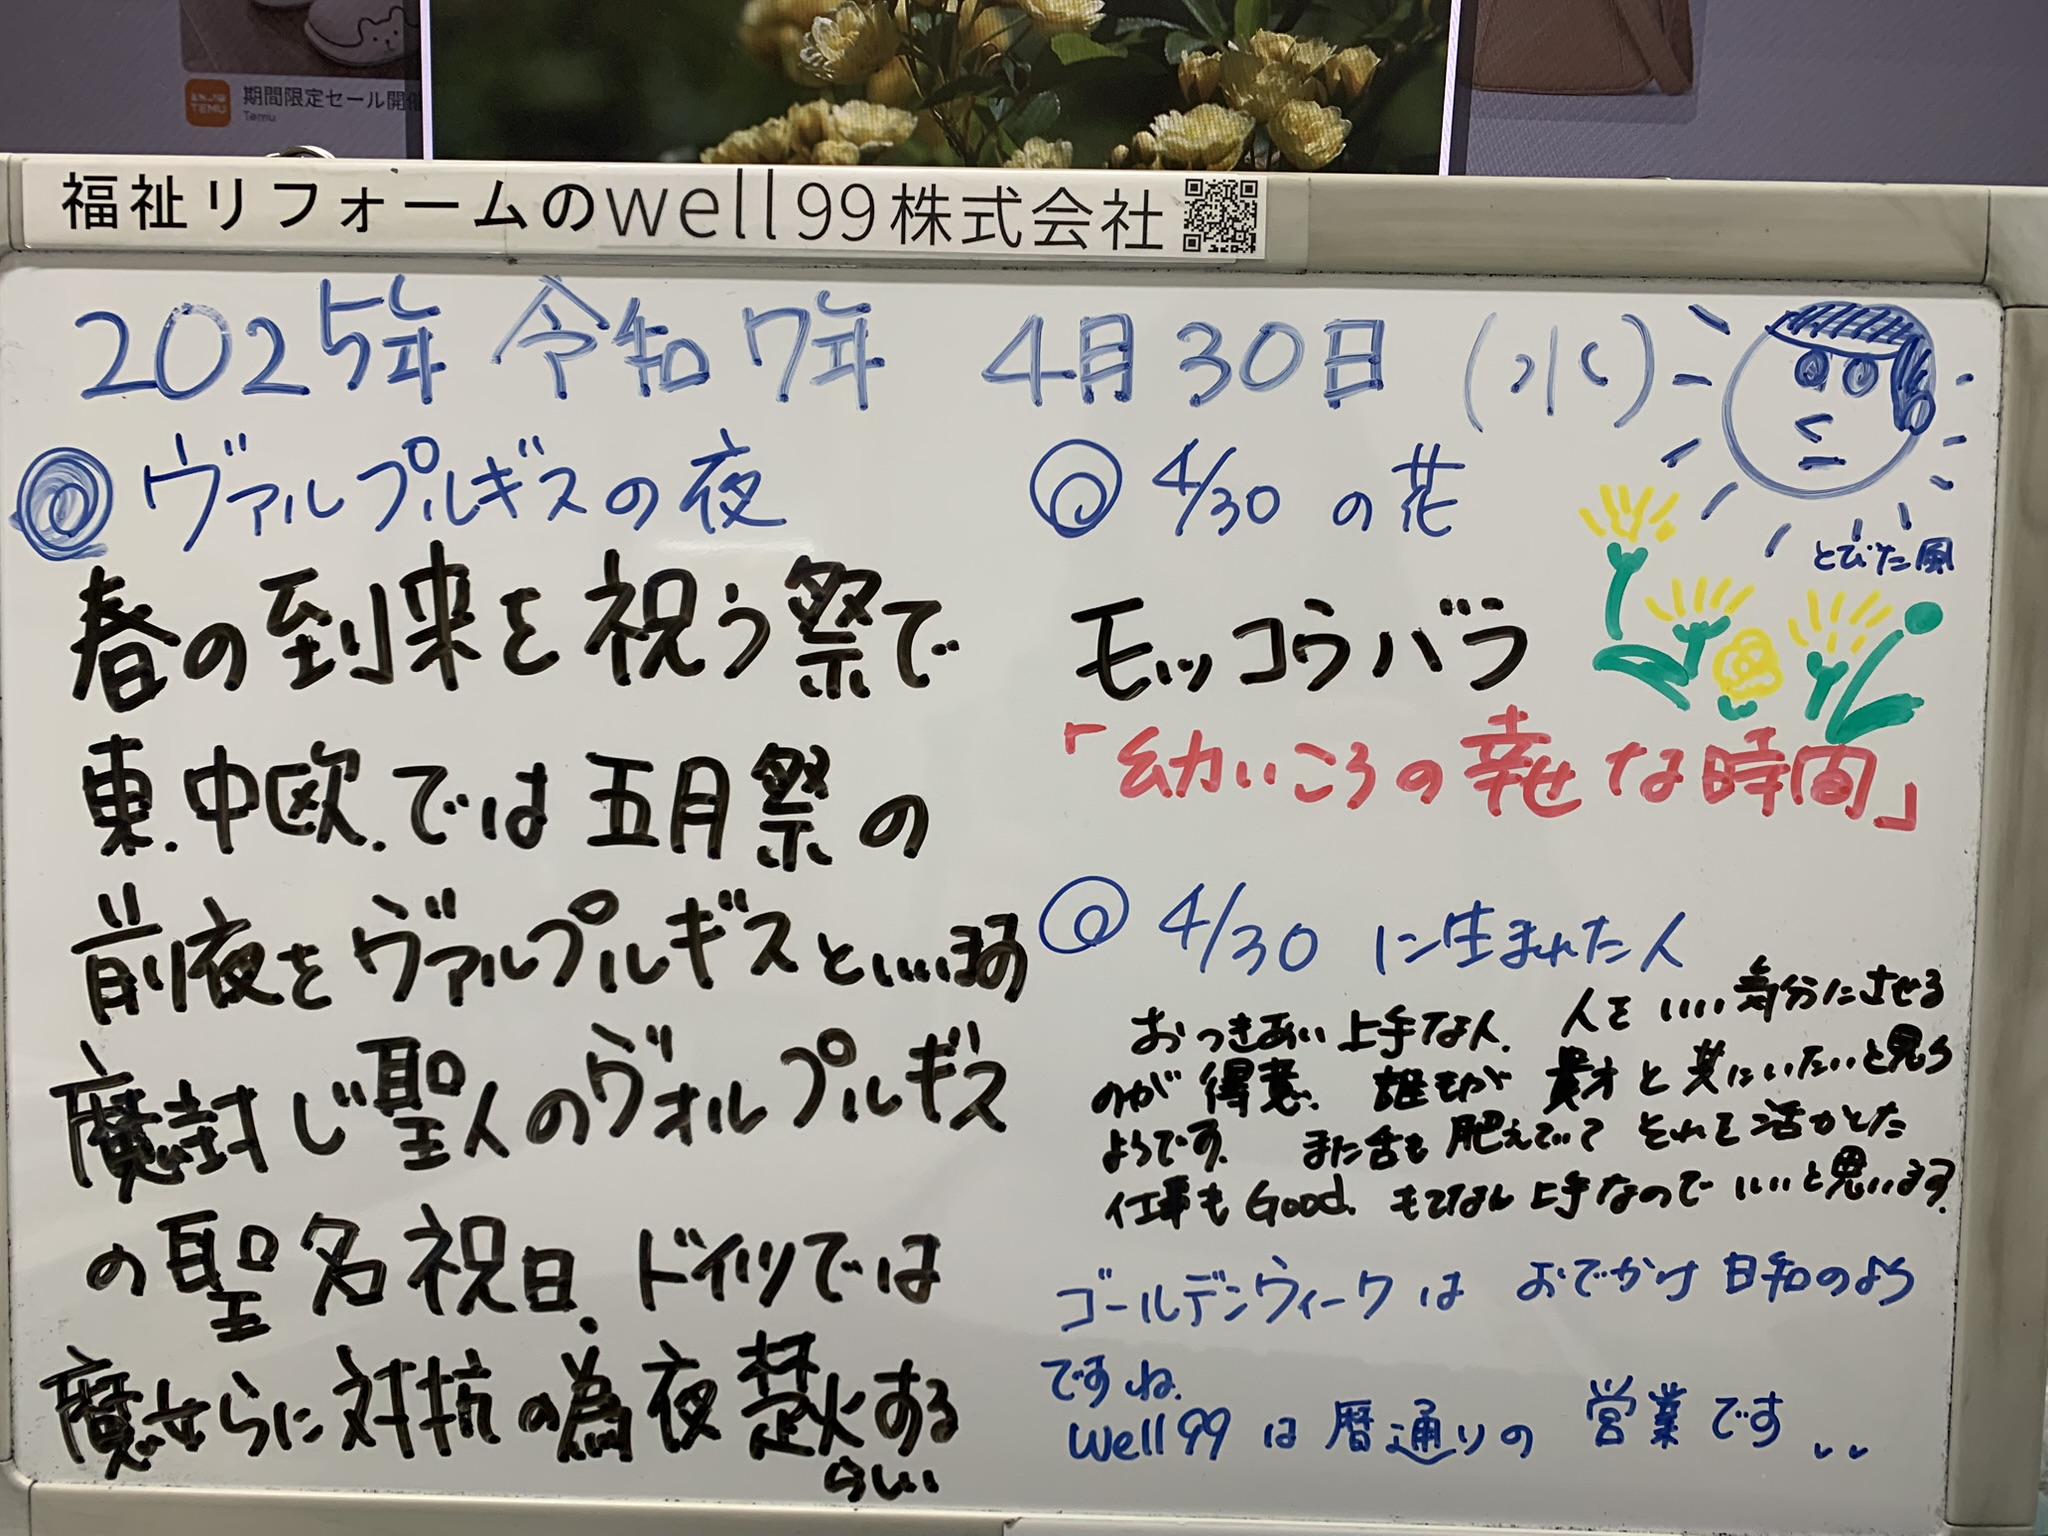 期間限定セール開催
Temu
TEMU
福祉リフォームのwell99株式会社
2025年 令和7年 4月30日(水)
とびた風
◎ヴァルプルギスの夜
春の到来を祝う祭で
東.中欧.では五月祭の
前夜をヴァルプルギスといいます
魔封じ聖人のヴォルプルギス
の聖名祝日.ドイツでは
魔女らに対抗の為夜焚火する
らしい
◎4/30の花
モッコウバラ
「幼いころの幸せな時間」
◎4/30に生まれた人
おつきあい上手な人. 人をいい気分にさせる
のが得意. 誰もが貴方と共にいたいと思う
ようです. また舌も肥えていてそれを活かした
仕事もGood. もてなし上手なのでいいと思います.
ゴールデンウィークは おでかけ日和のよう
ですね.
well99は暦通りの 営業です..